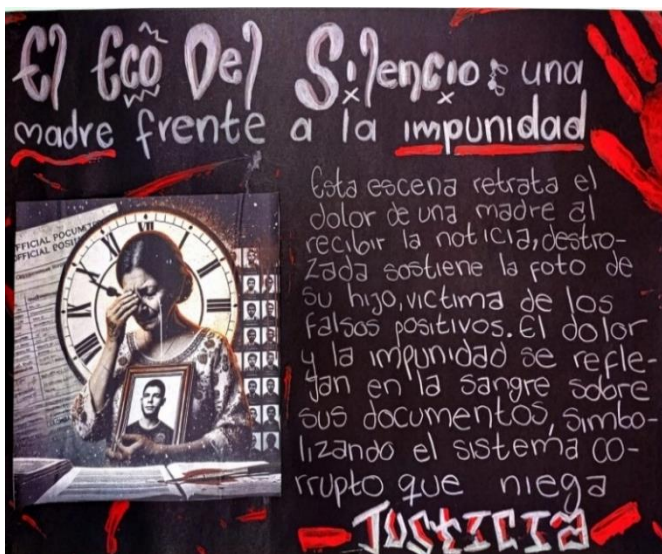 El Eco Del Silencio: una
madre frente a la impunidad
Esta escena retrata el
dolor de una madre al
recibir la noticia, destro-
zada sostiene la foto de
su hijo, victima de los
falsos positivos. El dolor
y la impunidad se refle-
jan en la sangre sobre
sus documentos, simbo-
lizando el sistema co-
rrupto que niega
JUSTICIA